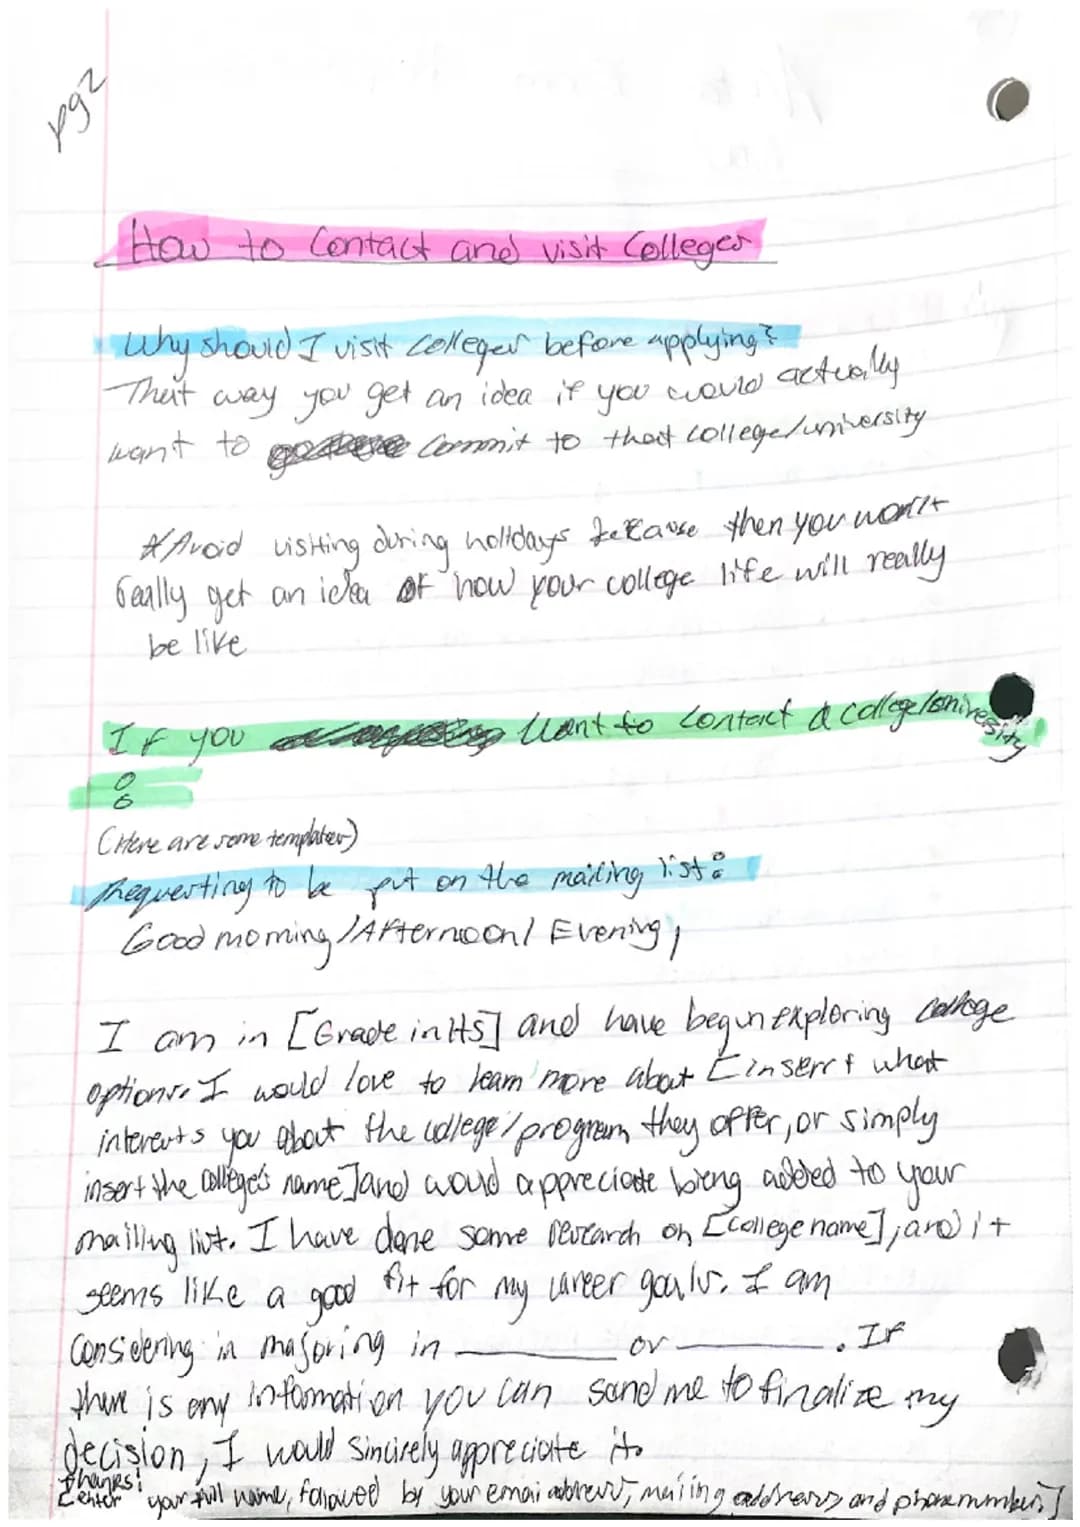 pg2
How to Contact and visit Colleges
Why should I visit colleges before applying?
That way you get an idea if you would actually
want to commit to that college/university
*Avoid visiting during holidays because then you won't
really get an idea of how your college life will really
be like
If you want to contact a college/university
:
(Here are some templates)
Requesting to be put on the mailing list:
Good morning/Afternoon/Evening,
I am in [Grade in HS] and have begun exploring college
options. I would love to learn more about [insert what
interests you about the college/program they offer, or simply
insert the college's name] and would appreciate being added to your
mailling list. I have done some research on [college name], and it
seems like a good fit for my career goals. I am
considering in majoring in ______ or ______. If
there is any information you can send me to finalize my
decision, I would sincirely appreciate it.
Thanks!
[enter your full name, followed by your emai address, mailing address and phone number.]